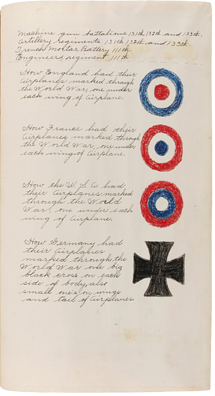 Machine gun battalions 131th, 132th and 133th.
Artillery regiments 131th 132th and 133th
Trench Mortar Battery 111th
Engineer regiment 111th
How England had their
airplanes marked through
the World War, one under
each wing of Airplane.
How France had their
Airplanes marked through
the World War, one under
each wing of Airplane.
How the U.S.A. had
their Airplanes marked
through the World
War, one under each
wing of Airplane.
How Germany had
their Airplanes
marked through the
World War one big
black cross on each
side of body, also
small ones on wings
and tail of Airplanes